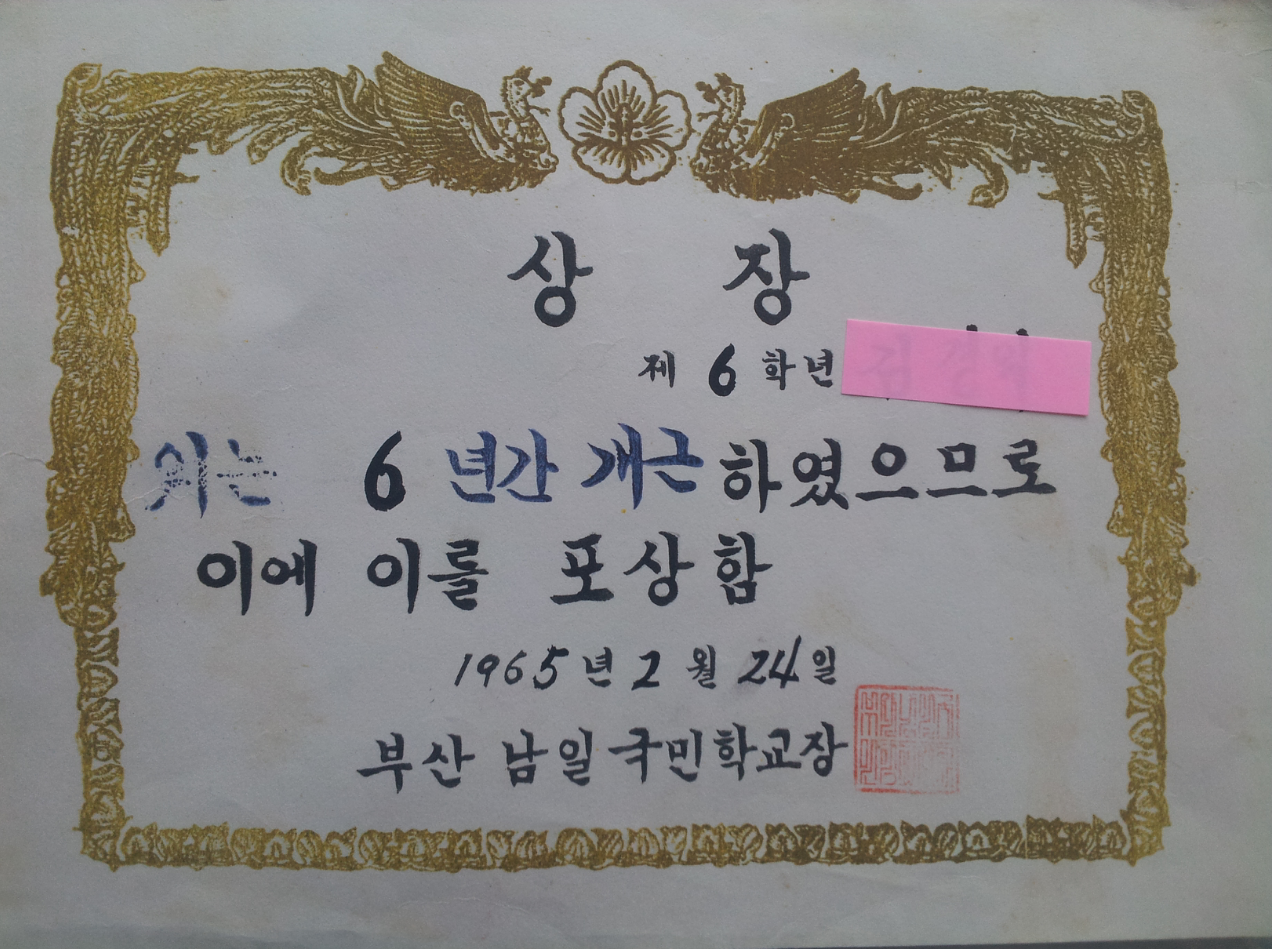 상 장
제 6 학년
위는 6 년간 개근 하였으므로
이에 이를 포상함
1965 년 2 월 24 일
부산 남일 국민학교장